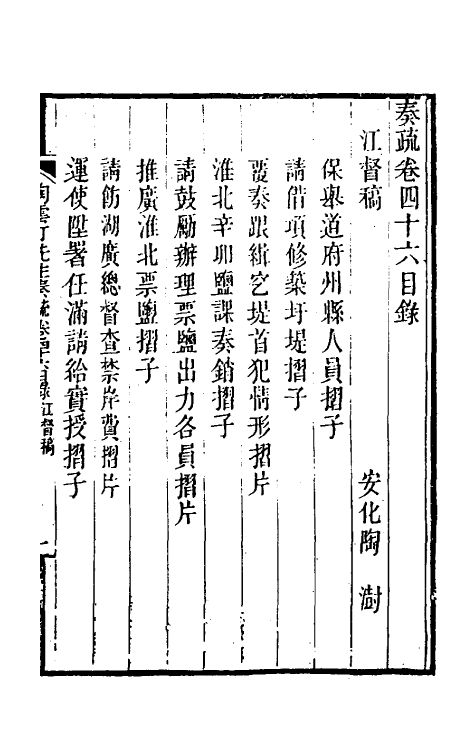 奏疏卷四十六目錄
江督稿　安化陶　澍
保舉道府州縣人員摺子
請借項修築圩堤摺子
覆奏跟緝空堤首犯情形摺片
淮北辛卯鹽課奏銷摺子
請鼓勵辦理票鹽出力各員摺片
推廣淮北票鹽摺子
請飭湖廣總督查禁岸費摺片
運使陞署任滿請給實授摺子
陶雲汀先生奏疏卷四十六目錄江督稿　一